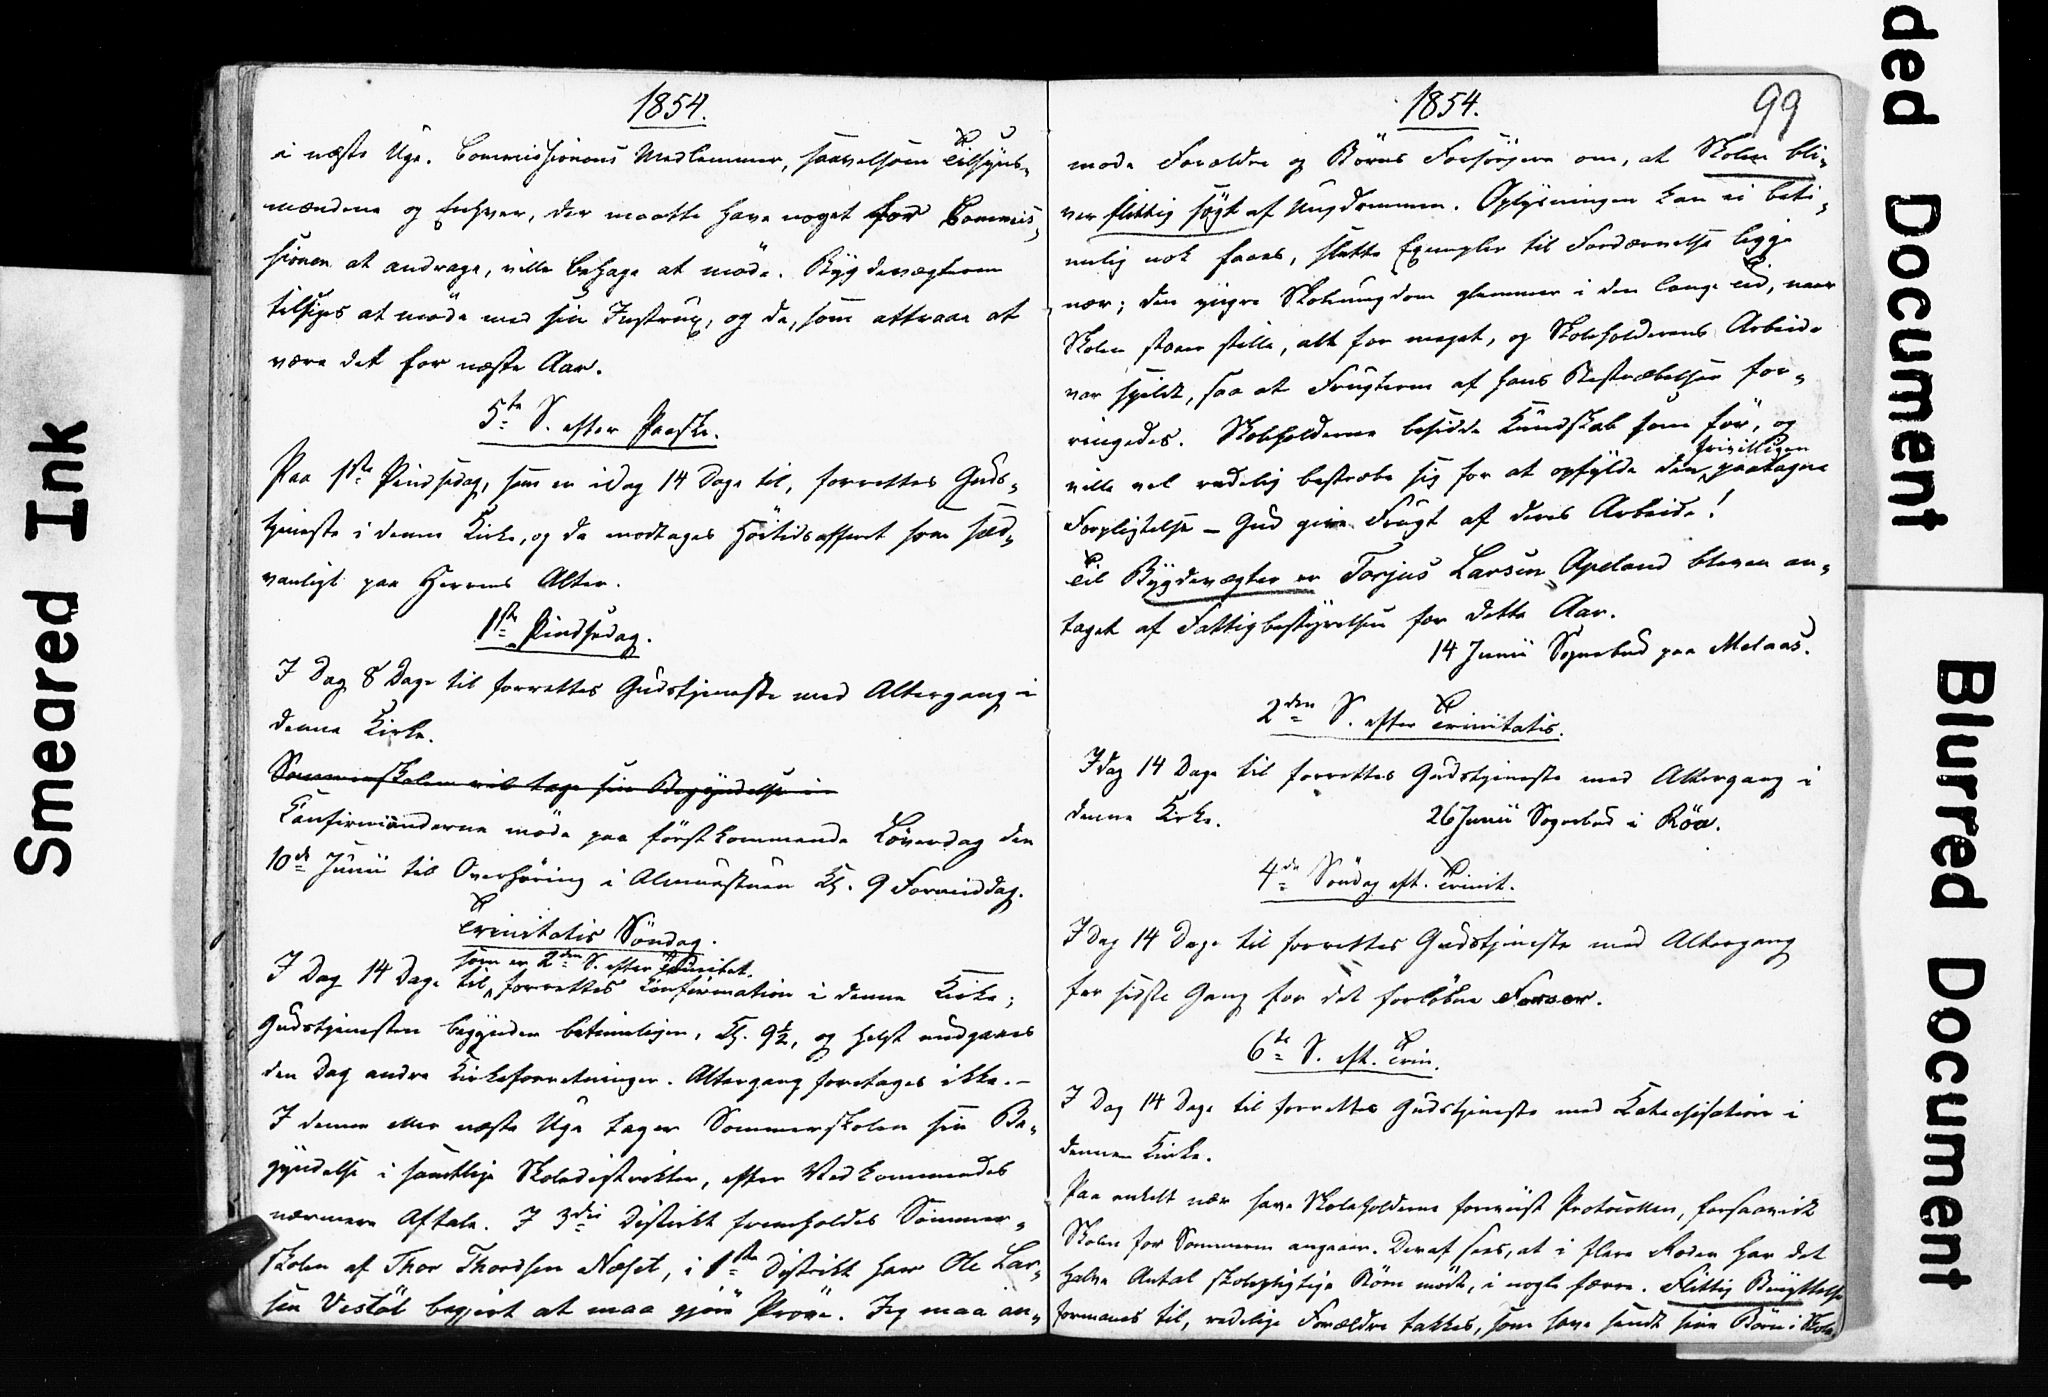 1854.
i næste Uge. Commissionens Medlemmer, saavelsom Tilsyns-
mændene og Enhver, der maatte have noget for Commis-
sionen at andrage, ville behage at møde. Bygdevægteren
tilsiges at møde med sin Instrux, og de, som attraae at
være det for næste Aar.
5te S. efter Paaske.
Paa 1ste Pindsedag, som er idag 14 Dage til, forrettes Guds-
tjeneste i denne Kirke, og da modtages Høitidsofferet som sæd-
vanligt paa Herrens Alter.
1ste Pindsedag.
I Dag 8 Dage til forrettes Gudstjeneste med Altergang i
denne Kirke.
Sommerskolen vil tage sin Begyndelse i
Confirmanderne møde paa førstkommende Løverdag den
10de Junii til Overhøring i Almuestuen Kl. 9 Formiddag.
Trinitatis Søndag.
som er 2den S. efter Trinitat.
I Dag 14 Dage til forrettes Confirmation i denne Kirke;
Gudstjenesten begynder betimeligen, Kl. 9½, og helst undgaaes
den Dag andre Kirkeforretninger. Altergang foretages ikke. –
I denne eller næste Uge tager Sommerskolen sin Be-
gyndelse i samtlige Skoledistrikter, efter Vedkommendes
nærmere Aftale. I 3die Distrikt fremholdes Sommer-
skolen af Thor Thordsen Næset, i 1ste Distrikt har Ole Lar-
sen Vestøl begjert at maa gjøre Prøve. Jeg maa an-
1854.
99
mode Forældre og Børns Forsørgere om, at Skolen bli-
ver flittig søgt af Ungdommen. Oplysningen kan ei beti-
melig nok faaes, slette Exempler til Fordærvelse ligge
nær; den yngre Skoleungdom glemmer i den lange Tid, naar
Skolen staaer stille, alt for meget, og Skoleholderens Arbeide
var spildt, saa at Frugterne af hans Bestræbelser for-
ringedes. Skoleholderne besidde Kundskab som før, og
frivilligen
ville vel redelig bestræbe sig for at opfylde den paatagne
Forpligtelse – Gud give Frugt af deres Arbeide!
Til Bygdevægter er Torjus Larsen Apeland bleven an-
taget af Fattigbestyrelsen for dette Aar.
14 Junii Sognebud paa Melaas.
2den S. efter Trinitatis.
Idag 14 Dage til forrettes Gudstjeneste med Altergang i
denne Kirke. 26 Junii Sognebud i Röa.
4de Søndag eft. Trinit.
I Dag 14 Dage til forrettes Gudstjeneste med Altergang
for sidste Gang for det forløbne Foraar.
6te S. eft. Trin.
I Dag 14 Dage til forrettes Gudstjeneste med Katechisation i
denne Kirke.
Paa enkelt nær have Skoleholderne foreviist Protocollen, forsaavidt
Skolen for Sommeren angaaer. Deraf sees, at i flere Roder har det
halve Antal skolepligtige Børn mødt, i nogle færre. Flittig Benyttelse
formanes til, redelige Forældre takkes, som have sendt sine Børn i Skole
Smeared Ink
ded Document
Blurred Document